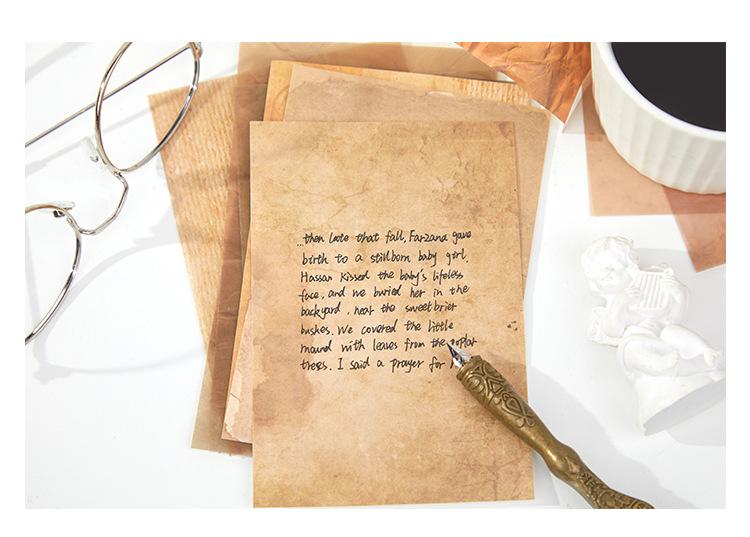 ...then late that fall, Farzana gave
birth to a stillborn baby girl.
Hassan kissed the baby's lifeless
face, and we buried her in the
backyard, near the sweetbrier
bushes. We covered the little
mound with leaves from the poplar
trees. I said a prayer for